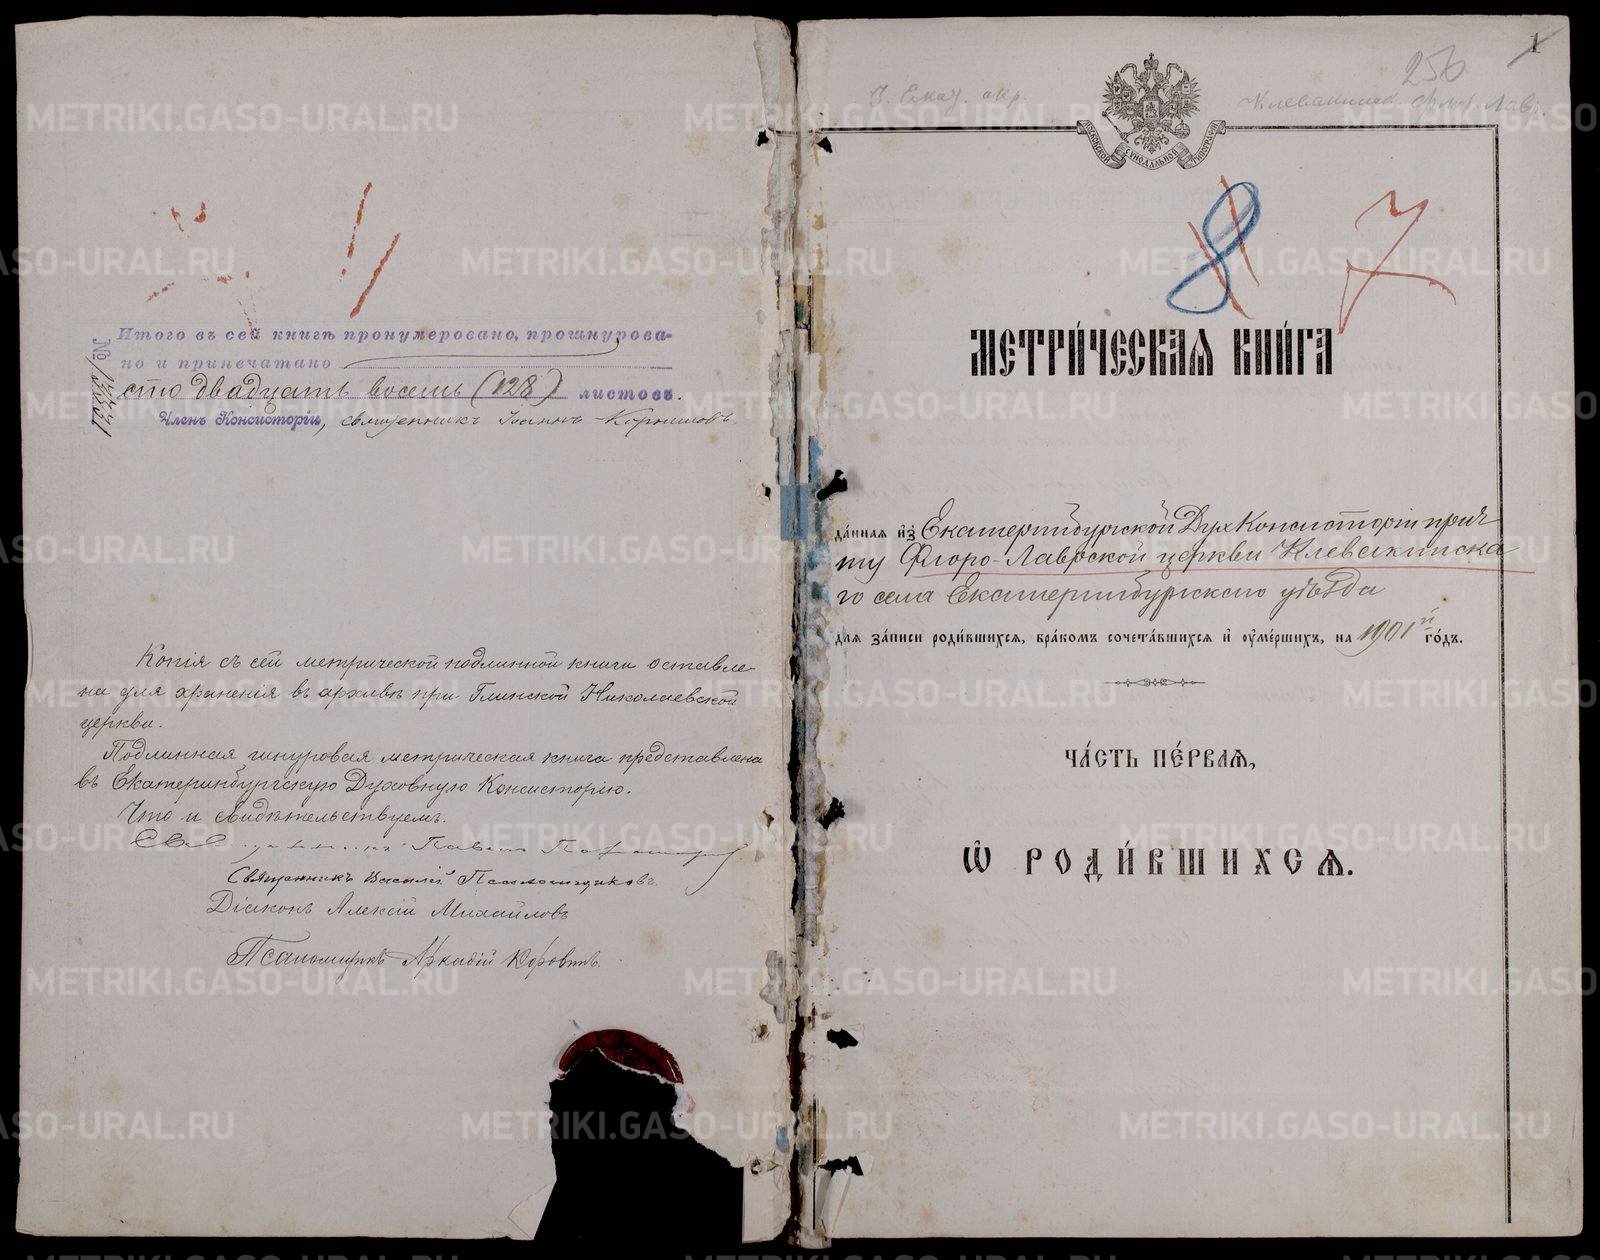 Итого въ сей книгѣ пронумеровано, прошнурова-
но и припечатано
сто двадцать восемь (128) листовъ.
Членъ Консисторіи, священникъ Іоаннъ Корниловъ.
№
Копія съ сей метрической подлинной книги оставле-
на для храненія въ архивѣ при Глинской Николаевской
церкви.
Подлинная шнуровая метрическая книга представлена
въ Екатеринбургскую Духовную Консисторію.
Что и свидѣтельствуемъ.
Священникъ Павелъ
Священникъ Василій
Діаконъ Алексій Михайловъ
Псаломщикъ Аркадій Коровинъ.
1
256
Екат. окр.
Клевакинск. Фл. Лав.
МОСКОВСКОЙ СѴНОДАЛЬНОЙ ТИПОГРАФІИ
8 7
МЕТРИ́ЧЕСКАѦ КНИ́ГА
да́нная из̾ Екатеринбургской Дух Консисторіи прич
ту Флоро-Лаврской церкви Клевакинска
го села Екатеринбургскаго уѣзда
для за́писи роди́вшихся, бра́комъ сочета́вшихся и҆ ᲂу҆ме́ршихъ, на 1901й го́дъ.
ЧА́СТЬ ПЕ́РВАѦ,
Ѽ РОДИ́ВШИХСѦ.
METRIKI.GASO-URAL.RU